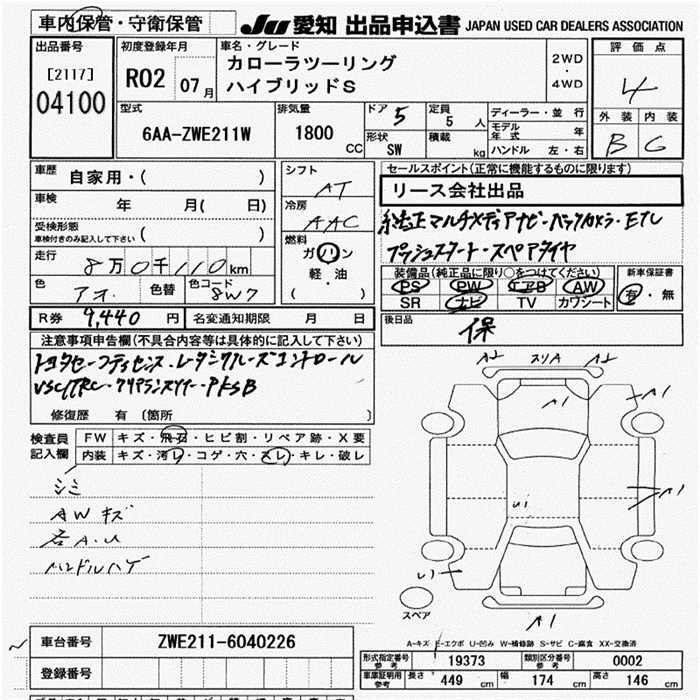 車内保管・守衛保管
JU 愛知 出品申込書 JAPAN USED CAR DEALERS ASSOCIATION
出品番号
[2117]
04100
初度登録年月
R02 07月
車名・グレード
カローラツーリング
ハイブリッドS
2WD
・
4WD
評価点
4
外装 内装
B C
型式
6AA-ZWE211W
排気量
1800 CC
ドア 5
形状 SW
定員 5 人
積載 kg
ディーラー・並行
モデル年式 年
ハンドル 左・右
車歴 自家用・( )
車検 年 月( 日)
受検形態
車検付きのみ記入して下さい ( )
走行 8万0千110km
色 アオ. 色替 色コード 8W7
シフト
AT
冷房
AAC
燃料
ガソリン
軽・油
( )
R券 9,440 円 名変通知期限 月 日
セールスポイント(正常に機能するものに限ります)
リース会社出品
純正マルチメディアナビ・バックカメラ・ETC
プッシュスタート・スペアタイヤ
装備品(純正品に限り○をつけてください)
PS PW エアB AW
SR ナビ TV カワシート
新車保証書
有・無
後日品
保
注意事項申告欄(不具合内容等は具体的に記入して下さい)
トヨタセーフティセンス・レーダークルーズコントロール
VSC/TRC・クリアランスソナー・PKSB
修復歴 有 〔箇所 〕
検査員
記入欄
FW キズ・飛石・ヒビ割・リペア跡・X要
内装 キズ・汚レ・コゲ・穴・スレ・キレ・破レ
シミ
AWキズ
右A.U
ハンドルハゲ
A2 スリA A2
A1
A1
A1
A1
スペア
A-キズ E-エクボ U-凹み W-補修跡 S-サビ C-腐食 XX-交換済
車台番号 ZWE211-6040226
登録番号
形式指定番号 参考 19373 類別区分番号 参考 0002
車庫証明用 参考 長さ 449 cm 幅 174 cm 高さ 146 cm